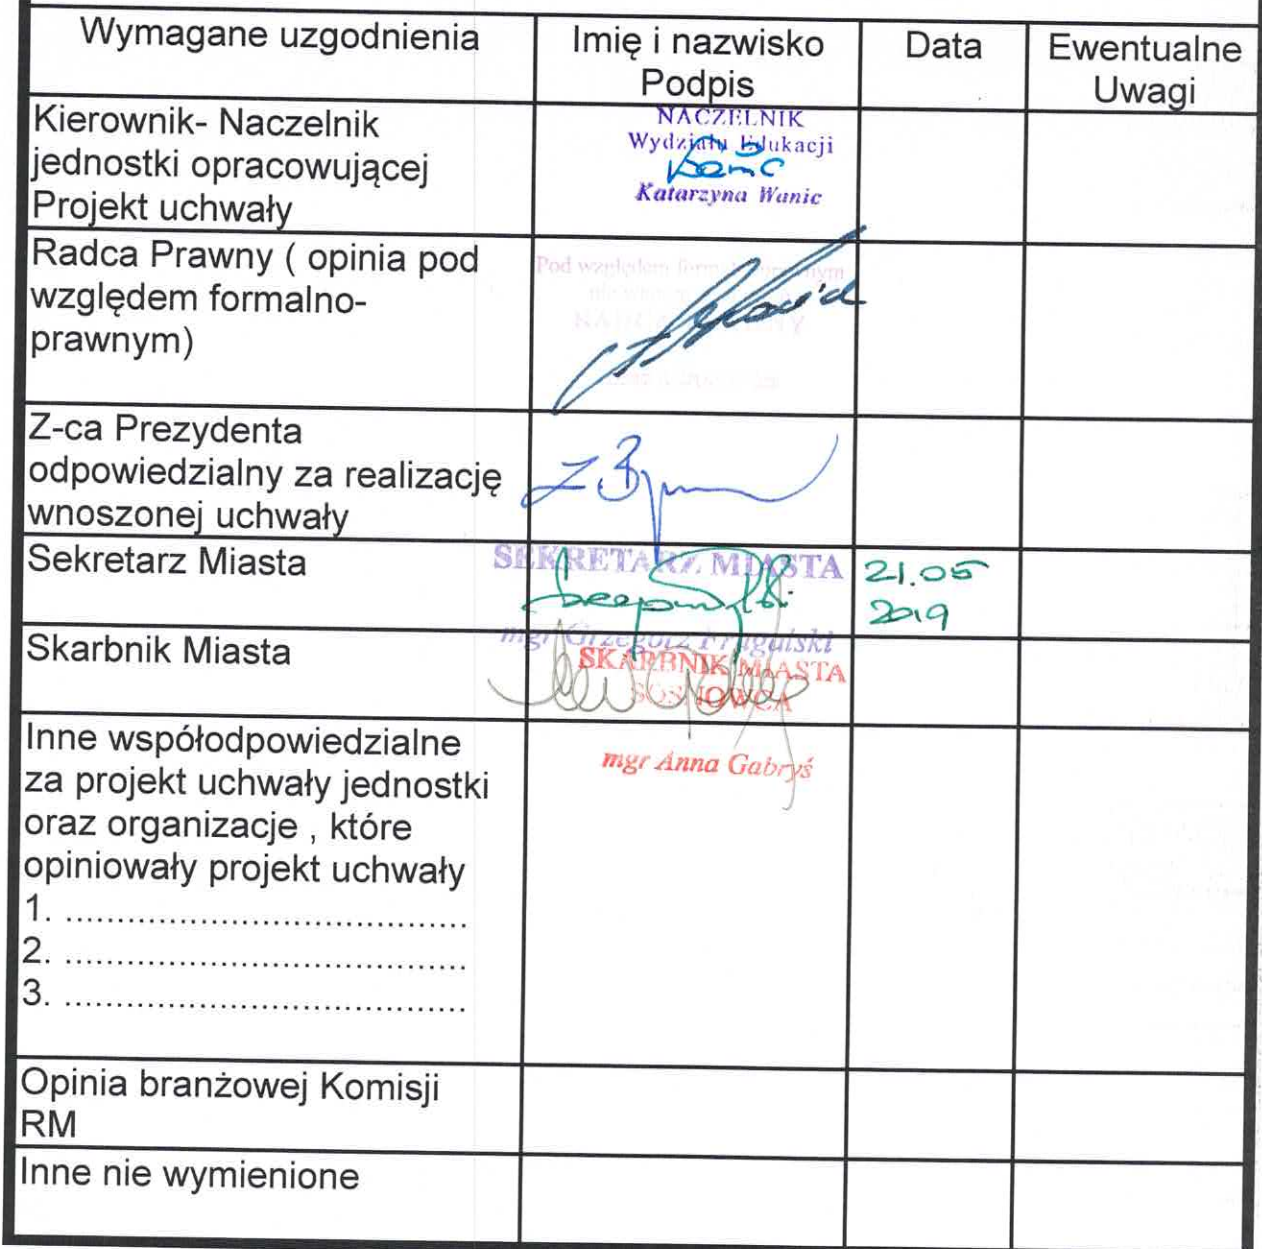 Wymagane uzgodnienia
Imię i nazwisko
Podpis
Data
Ewentualne
Uwagi
Kierownik- Naczelnik
jednostki opracowującej
Projekt uchwały
NACZELNIK
Wydziału Edukacji
Katarzyna Wanic
Radca Prawny ( opinia pod
względem formalno-
prawnym)
Pod względem
Z-ca Prezydenta
odpowiedzialny za realizację
wnoszonej uchwały
Sekretarz Miasta
SEKRETARZ MIASTA
mgr Grzegorz
21.05
2019
Skarbnik Miasta
SKARBNIK MIASTA
SOSNOWCA
mgr Anna Gabryś
Inne współodpowiedzialne
za projekt uchwały jednostki
oraz organizacje , które
opiniowały projekt uchwały
1. ......................................
2. ......................................
3. ......................................
Opinia branżowej Komisji
RM
Inne nie wymienione